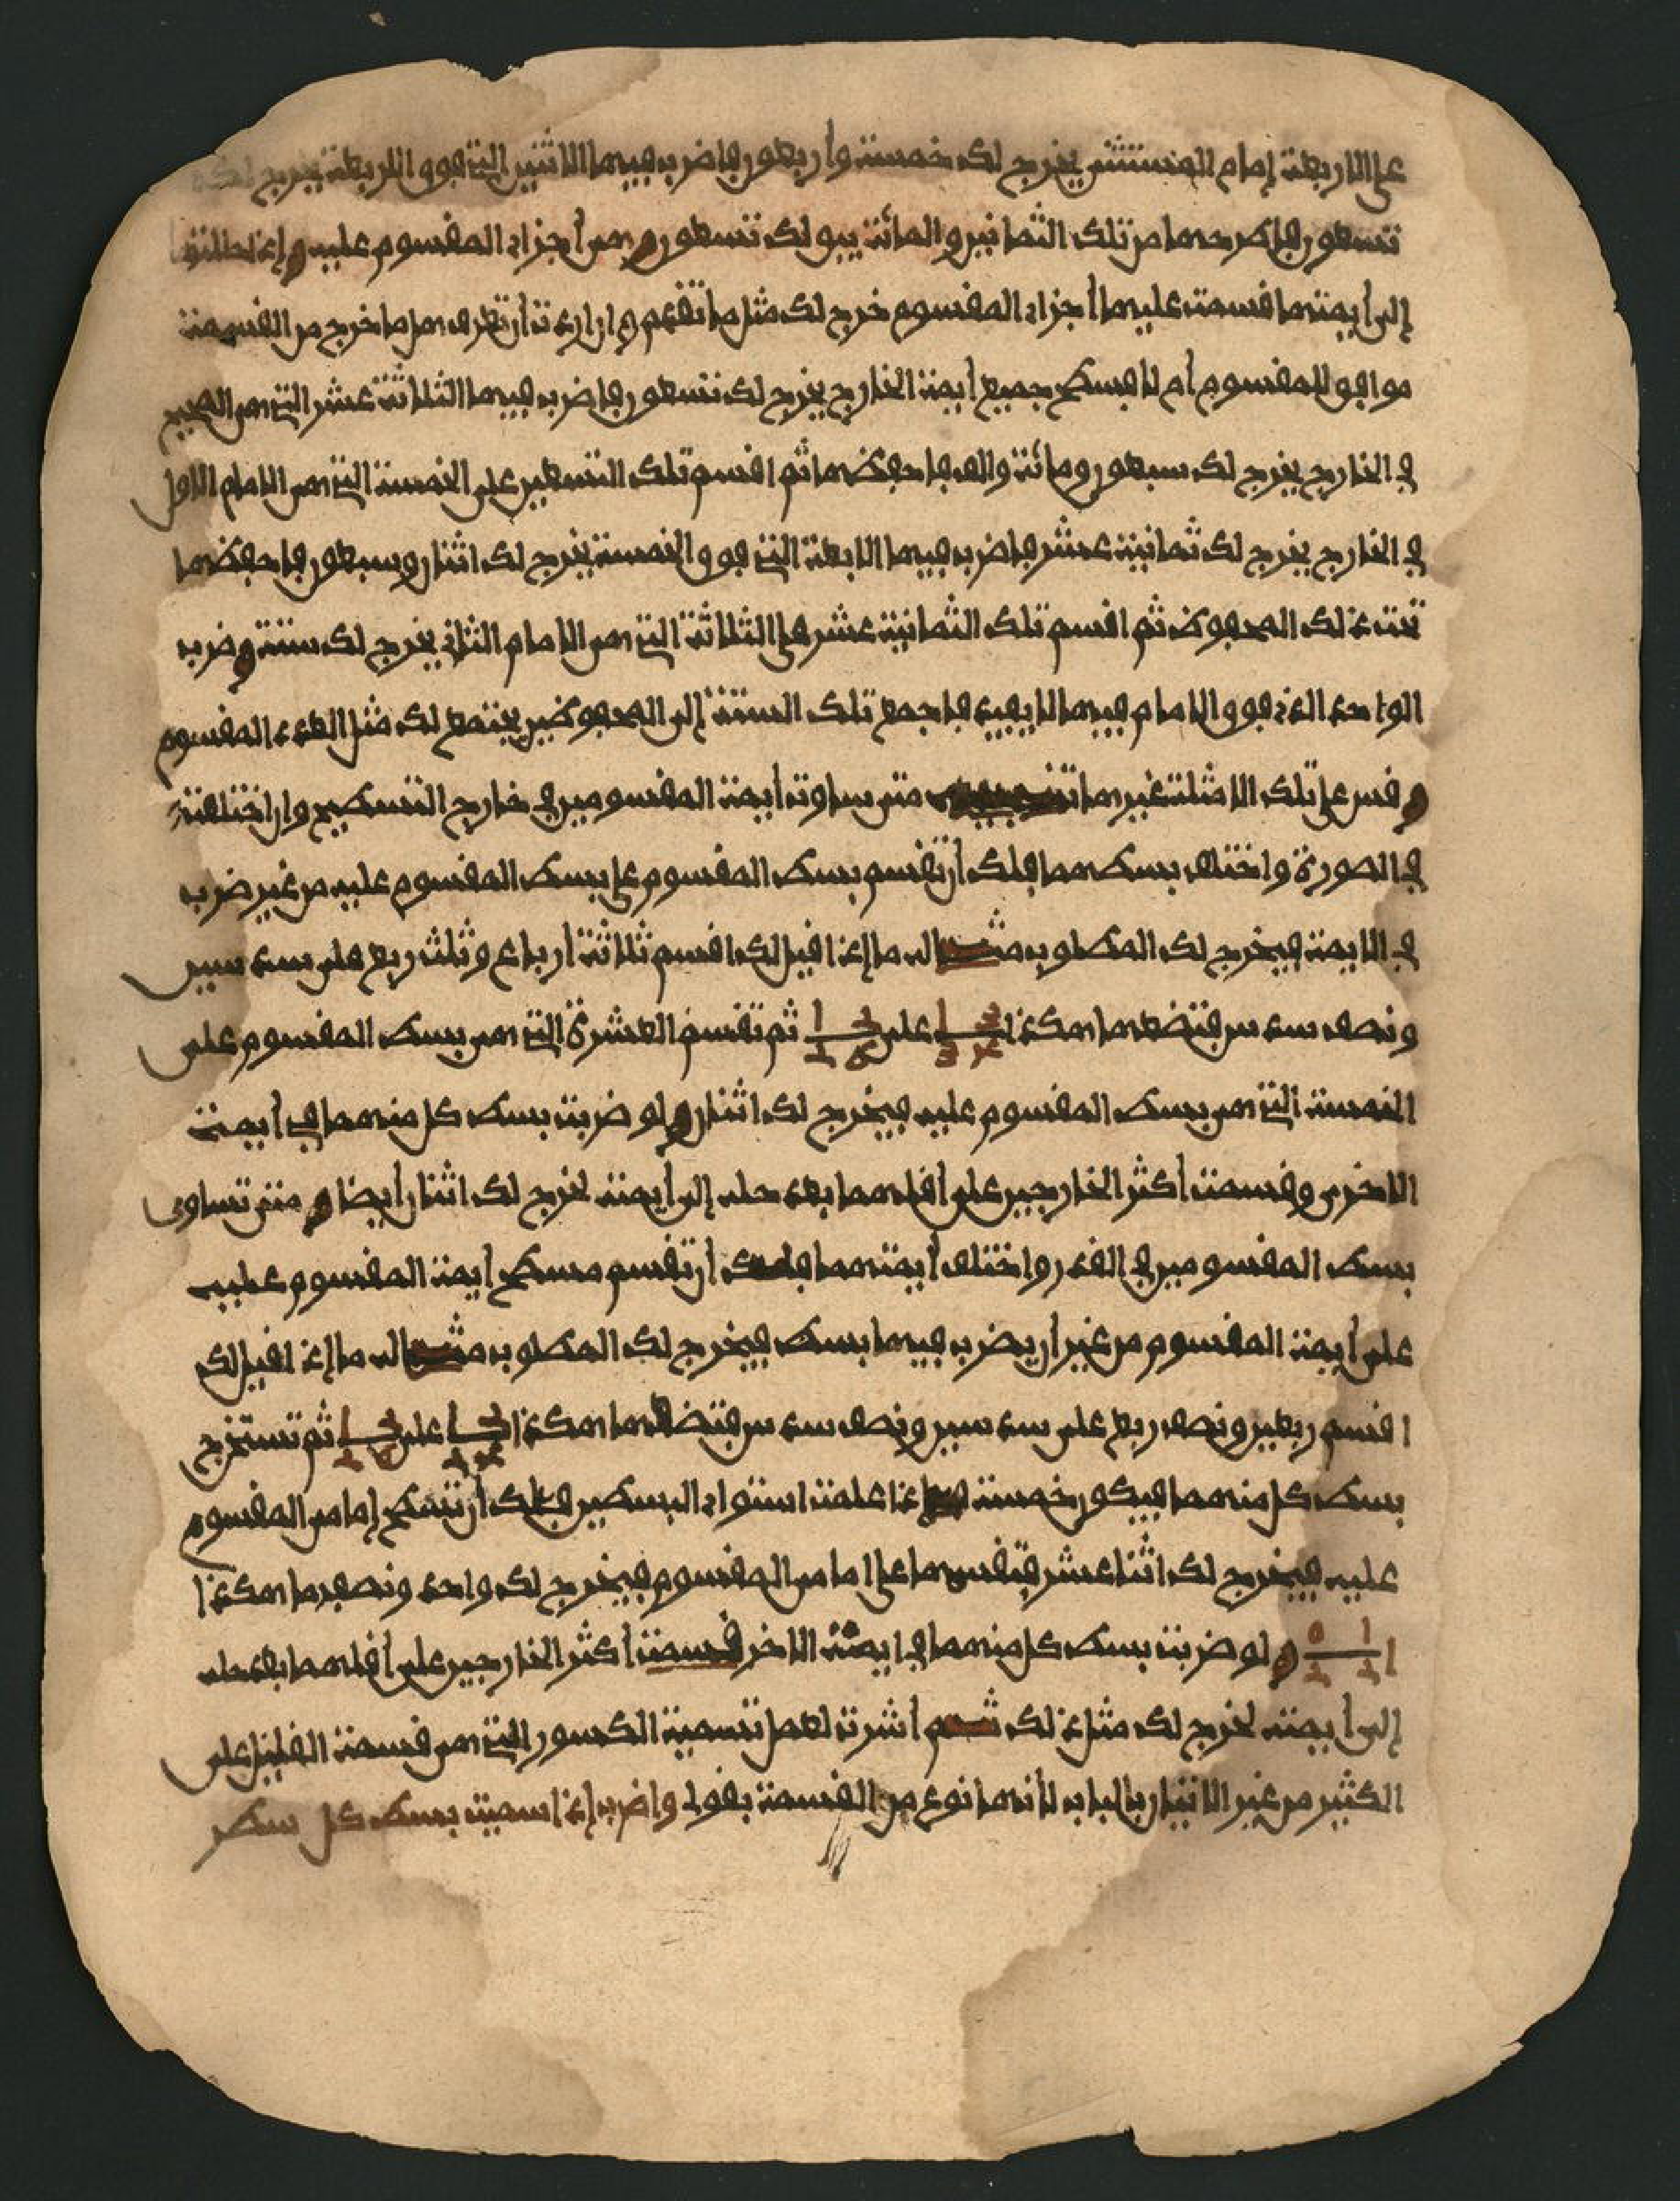 على الاربعة إمام المستثنى يخرج لك خمسة وأربعون فاضرب فيها الاثنين التي فوق الاربعة يخرج لك
تسعون فاطرحها من تلك الثمانين والمائة يبق لك تسعون وهي أجزاء المقسوم عليه وإذا حللتها
إلى أيمتها قسمت عليها أجزاء المقسوم خرج لك مثل ما تقدم وإن اردت أن تعرف هل ما خرج من القسمة
موافق للمقسوم أم لا فسطح جميع أيمة الخارج يخرج لك تسعون فاضرب فيها الثلاثة عشر التي هي الصحيح
في الخارج يخرج لك سبعون ومائة والف فاحفظها ثم اقسم تلك التسعين على الخمسة التي هي الامام الاول
في الخارج يخرج لك ثمانية عشر فاضرب فيها الابعة التي فوق الخمسة يخرج لك اثنان وسبعون فاحفظها
تحت ذلك المحفوظ ثم اقسم تلك الثمانية عشر على الثلاثة التي هي الامام الثاني يخرج لك ستة وضرب
الواحد الذي فوق الامام فيها لا يفيد فاجمع تلك الستة إلى المحفوظين يجتمع لك مثل العدد المقسوم
وقس على تلك الامثلة غيرها متى ساوت أيمة المقسومين في خارج التسطيح وان اختلفت
في الصورة واختلف بسطهما فلك أن تقسم بسط المقسوم على بسط المقسوم عليه من غير ضرب
في الايمة فيخرج لك المطلوب مثاله ما إذا قيل لك اقسم ثلاثة أرباع وثلث ربع على سدسين
ونصف سدس فتضعها هكذا ١ ٣ / ٣ ٤ على ١ ٢ / ٢ ٦ ثم تقسم العشرة التي هي بسط المقسوم على
الخمسة التي هي بسط المقسوم عليه فيخرج لك اثنان ولو ضربت بسط كل منهما في أيمة
الاخرى وقسمت أكثر الخارجين على أقلهما بعد حله إلى أيمته لخرج لك اثنان أيضا ومتى تساوى
بسط المقسومين في القدر واختلف أيمتهما فلك أن تقسم مسطح أيمة المقسوم عليه
على أيمة المقسوم من غير أن يضرب فيها بسط فيخرج لك المطلوب مثاله ما إذا قيل لك
اقسم ربعين ونصف ربع على سدسين ونصف سدس فتضعهما هكذا ١ ٢ / ٢ ٤ على ١ ٢ / ٢ ٦ ثم تستخرج
بسط كل منهما فيكون خمسة فإذا علمت استواء البسطين فلك أن تسطح إمامي المقسوم
عليه فيخرج لك اثنا عشر فتقسمها على إمامي المقسوم فيخرج لك واحد ونصف هكذا
١ ١ ٠ / ٢ ٢ ولو ضربت بسط كل منهما في ايمة الاخر وقسمت أكثر الخارجين على أقلهما بعد حله
إلى أيمته لخرج لك مثل ذلك ثم أشرت لعمل تسمية الكسور التي هي قسمة القليل على
الكثير من غير الاتيان بالباب لأنها نوع من القسمة بقولي واضرب إذا سميت بسط كل سطر